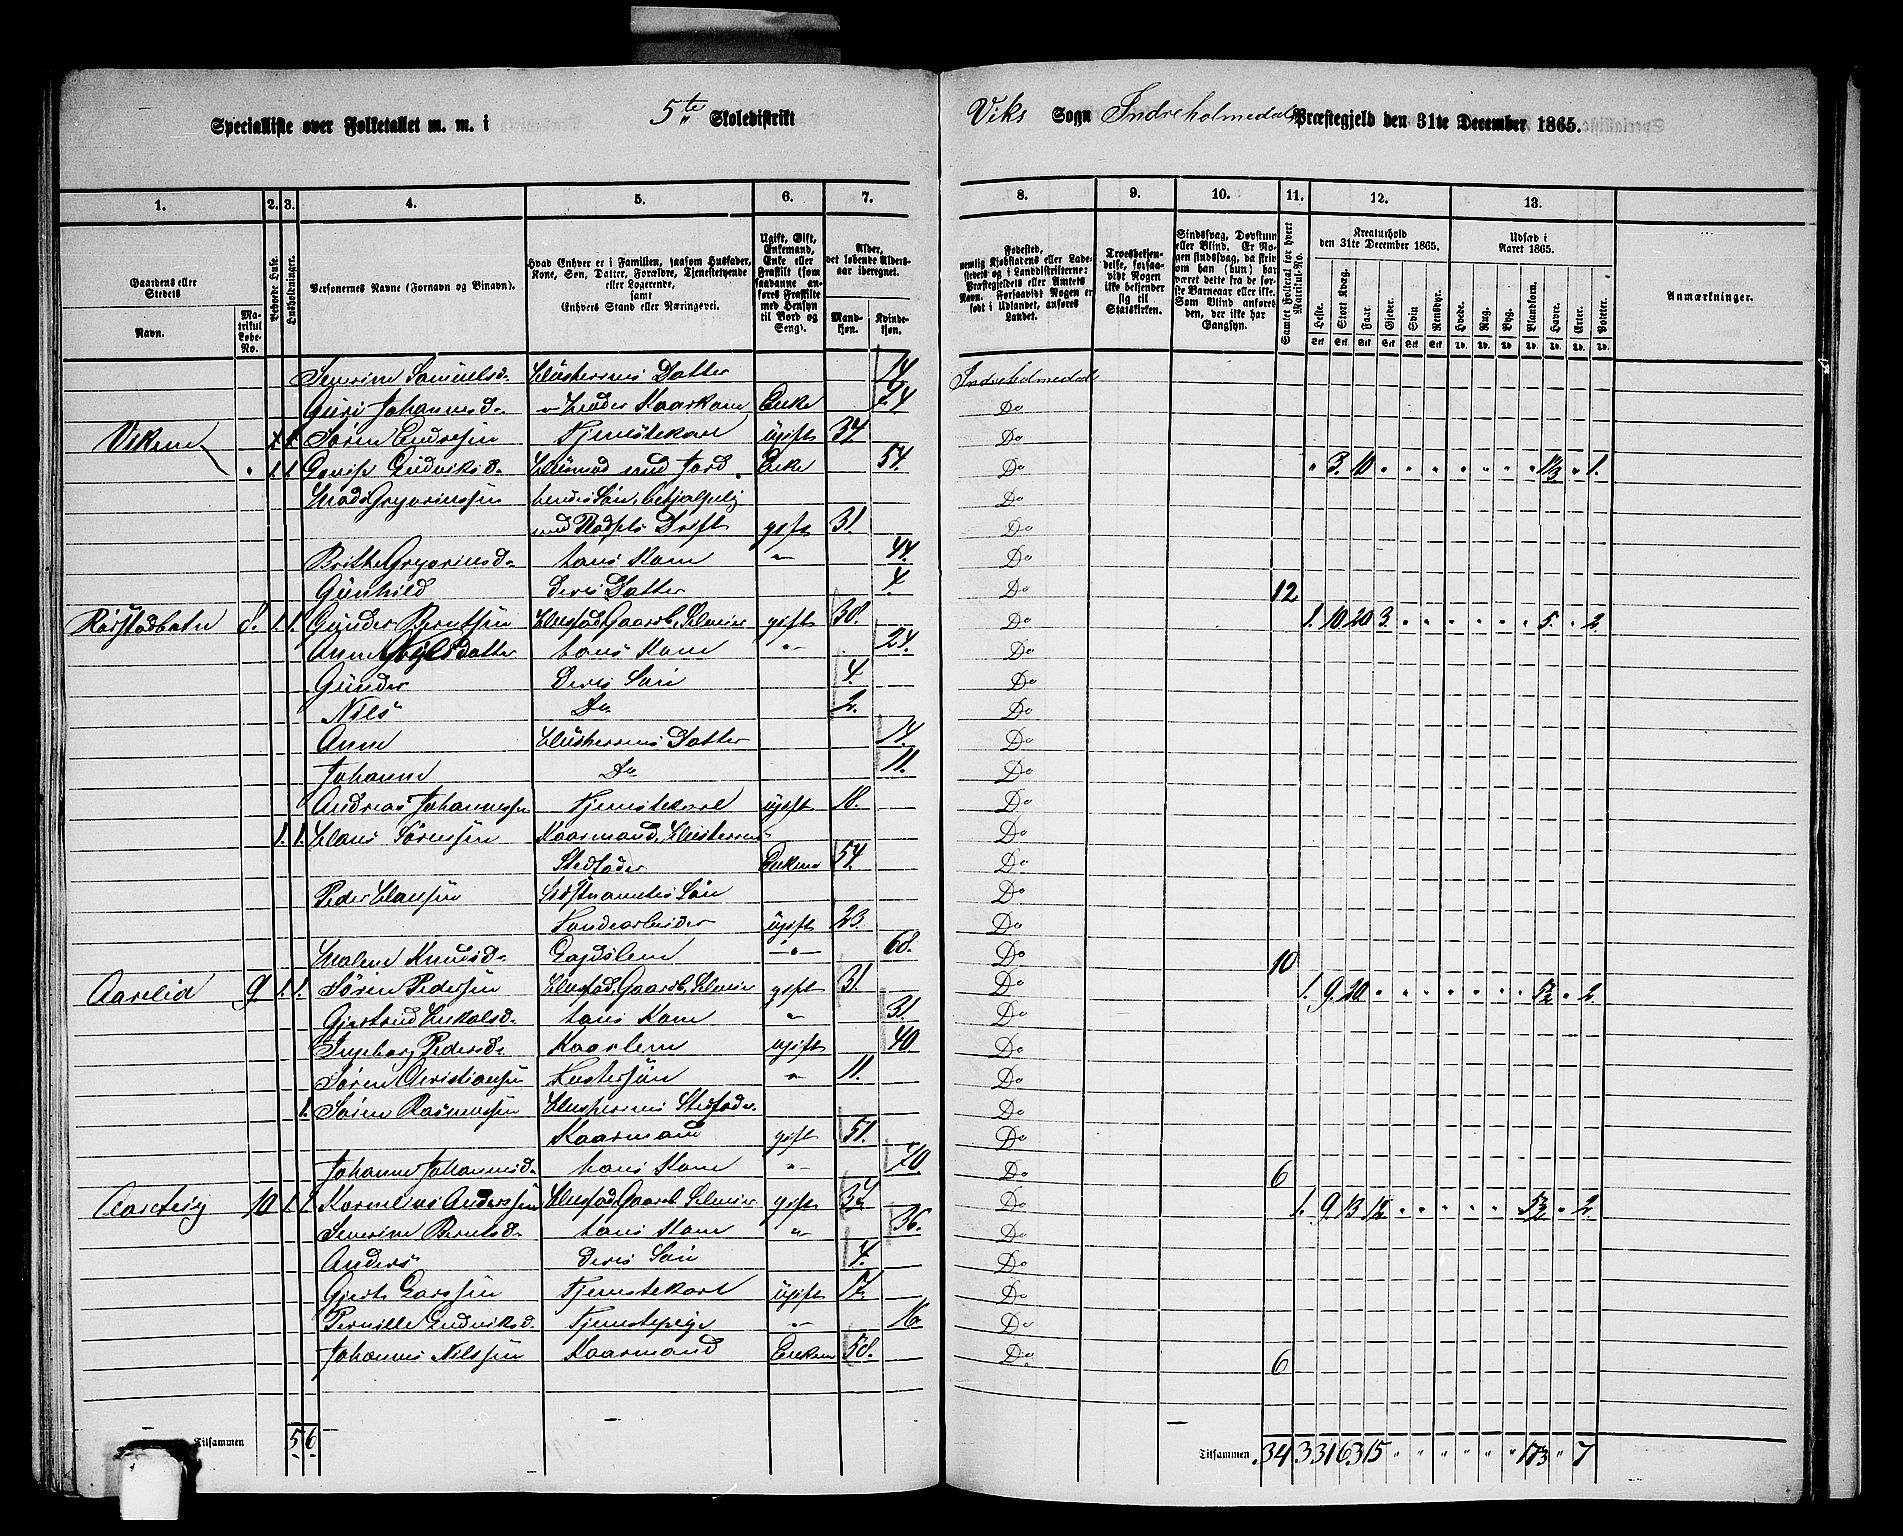 Specialliste over Folketallet m. m. i 5te Skoledistrikt Viks Sogn Indreholmedals Præstegjeld den 31te December 1865.
1. 2. 3. 4. 5. 6. 7. 8. 9. 10. 11. 12. 13.
Gaardens eller Stedets
Navn.
Matrikul Løbe-No.
Beboede Huse.
Husholdninger.
Personernes Navne (Fornavn og Binavn).
Hvad Enhver er i Familien, saasom Husfader, Kone, Søn, Datter, Forældre, Tjenestetyende eller Logerende, samt Enhvers Stand eller Næringsvei.
Ugift, Gift, Enkemand, Enke eller Fraskilt (som saadanne anføres Fraskilte med Hensyn til Bord og Seng).
Alder, det løbende Aldersaar iberegnet.
Mandkjøn. Kvindekjøn.
Fødested, nemlig Kjøbstadens eller Ladestedets og i Landdistrikterne: Præstegjeldets eller Amtets Navn. Forsaavidt Nogen er født i Udlandet, anføres Landet.
Troesbekjendelse, forsaavidt Nogen ikke bekjender sig til Statskirken.
Sindssvag, Døvstum eller Blind. Er Nogen sindssvag, da skrives om han (hun) har været dette fra de første Barneaar eller ikke. Som Blind anføres den, der ikke har Gangsyn.
Samlet Folketal for hvert Matrikul-No.
Kreaturhold den 31te December 1865.
Heste. Stort Kvæg. Faar. Gjeder. Svin. Rensdyr.
Udsæd i Aaret 1865.
Hvede. Rug. Byg. Blandkorn. Havre. Erter. Poteter.
Anmærkninger.
Severine Samuelsd. Husherrens Datter 14 Indreholmedal
Guri Johannesd. Moder Kaarkone Enke 74 Do
Vikene Søren Endresen Tjenestekarl ugift 34 Do
" 1. 1. Ludviksd. Husmod med Jord Enke 54. Do " 3. 10 " " " " " " " 1⅓ " 1.
Mads Gregoriussen hendes Søn, behjælpelig Do
med Pladsens Drift gift 31. Do
Brithe Gregoriusd. hans Kone " 44. Do
Gunhild Deres Datter 4 Do 12
Rørstadbotn 8. 1. 1. Gunder Berntsen Husfad, Gaardb, Selveier gift 38. Do 1. 10 20 3. " " " " " " 5. " 2.
Anne datter hans Kone " 24. Do
Gunder Deres Søn 4. Do
Nils Do 2. Do
Anne Husherrens Datter 14. Do
Johanne Do 11. Do
Andreas Johannessen Tjenestekarl ugift 18. Do
1. 1. Hans Sørensen Kaarmand, Husherrens Do
Stedfader Enkem 54. Do
Peder Hansen Sidstnævntes Søn Do
Haandarbeider ugift 23. Do
Malene Knudsd. Lægdslem " 68. Do 10
Aarelid 9. 1. 1. Søren Pedersen Husfad, Gaardb, Selveier gift 31. Do 1. 9. 20 " " " " " " " 5½ " 2.
Gjertrud d. hans Kone " 31. Do
Ingeborg Pedersd. Kaarlem ugift 40 Do
Søren Christiansen Fostersøn " 11. Do
1. Søren Rasmussen Husherrens Stedfader Do
Kaarmand gift 51. Do
Johanne Johannesd. hans Kone " 70 Do 6
Aareteig 10 1. 1. Kornelius Anderssen Husfad, Gaardb, Selveier gift 32 Do 1. 9. 13 12 " " " " " " 5½ " 2.
Severine Berntsd. hans Kone " 36. Do
Anders Deres Søn 4. Do
Gjert Larssen Tjenestekarl ugift 17. Do
Pernille Ludviksd. Tjenestepige " 16. Do
Johannes Nilssen Kaarmand Enkem 58. Do 6
Tilsammen 5 6 Tilsammen 34. 3 31 63 15 " " " " " " 17⅓ " 7